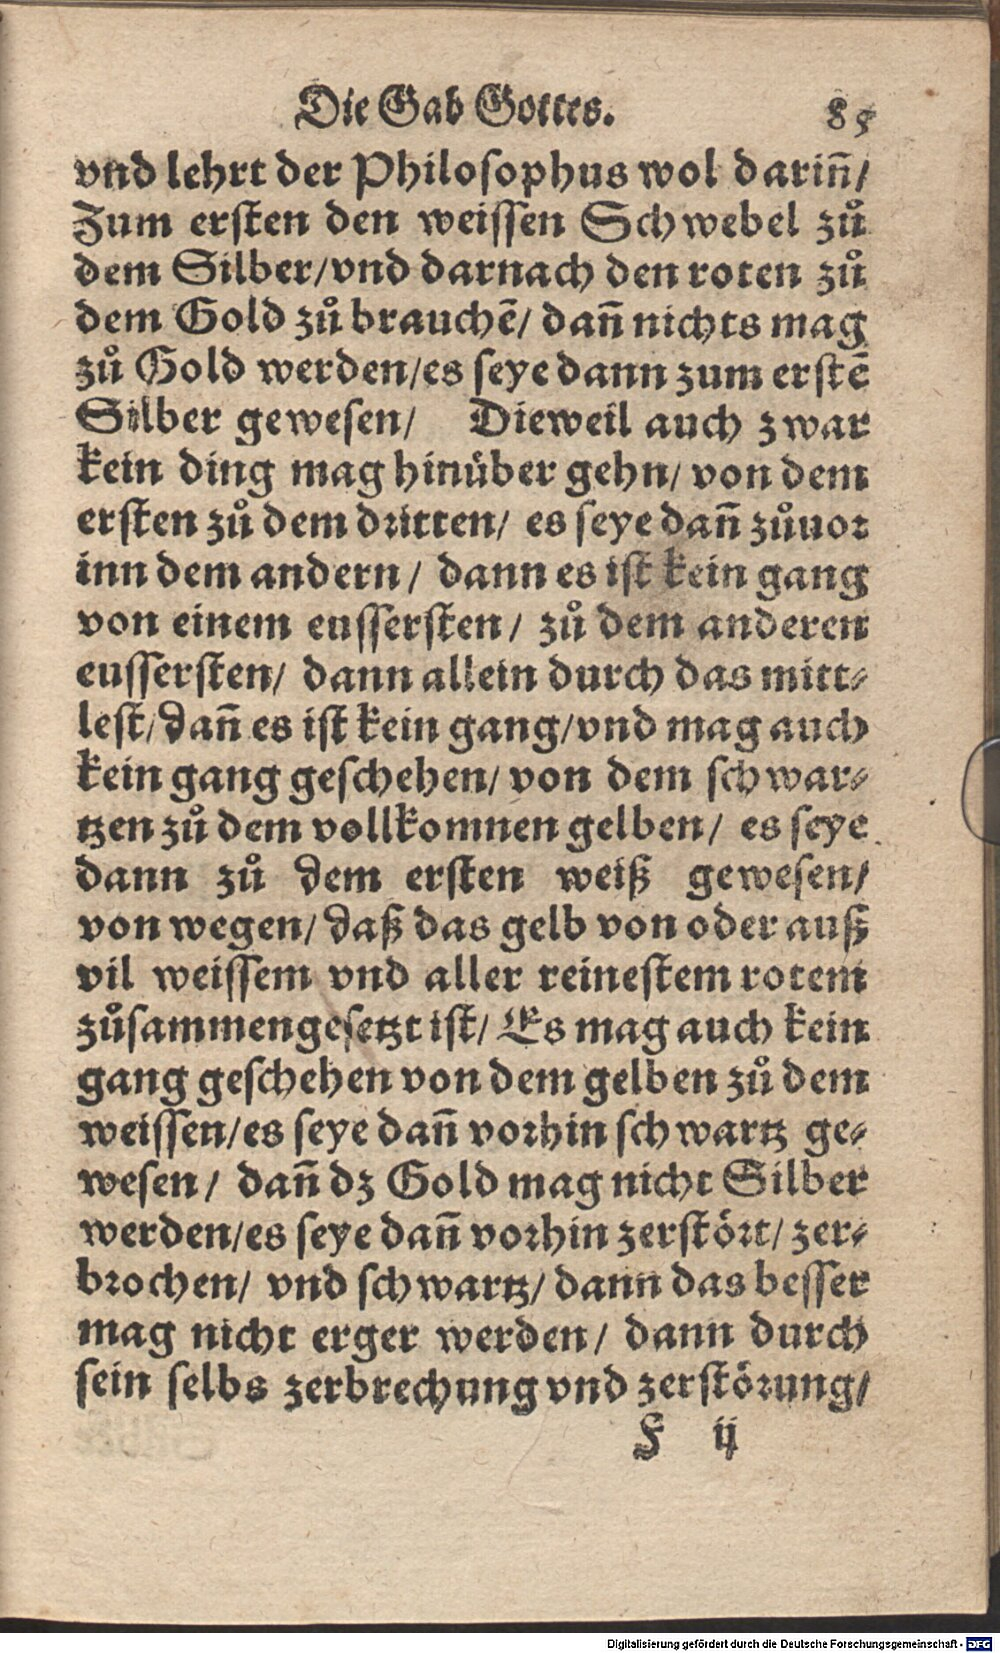 Die Gab Gottes. 85
vnd lehrt der Philosophus wol darin̄/
Zum ersten den weissen Schwebel zů
dem Silber/vnd darnach den roten zů
dem Gold zů brauchē/ dan̄ nichts mag
zů Gold werden/es seye dann zum erstē
Silber gewesen/ Dieweil auch zwar
kein ding mag hinüber gehn/ von dem
ersten zů dem dritten/ es seye dan̄ zůuor
inn dem andern/ dann es ist kein gang
von einem eussersten/ zů dem anderen
eussersten/ dann allein durch das mitt⸗
lest/dan̄ es ist kein gang/vnd mag auch
kein gang geschehen/ von dem schwar⸗
tzen zů dem vollkomnen gelben/ es seye
dann zů dem ersten weiß gewesen/
von wegen/ daß das gelb von oder auß
vil weissem vnd aller reinestem rotem
zůsammengesetzt ist/ Es mag auch kein
gang geschehen von dem gelben zů dem
weissen/es seye dan̄ vorhin schwartz ge⸗
wesen/ dan̄ dz Gold mag nicht Silber
werden/es seye dan̄ vorhin zerstört/ zer⸗
brochen/ vnd schwartz/ dann das besser
mag nicht erger werden/ dann durch
sein selbs zerbrechung vnd zerstörung/
F ij
Digitalisierung gefördert durch die Deutsche Forschungsgemeinschaft - DFG